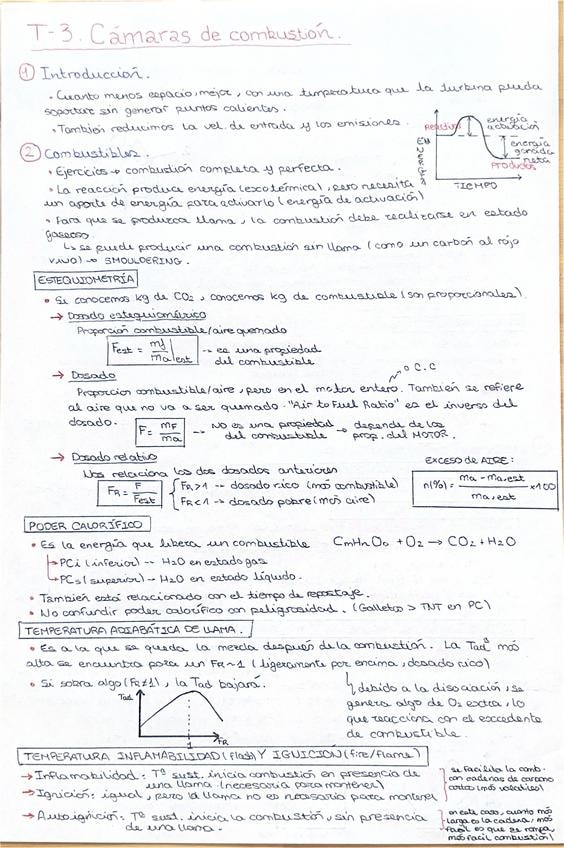 T-3. Cámaras de combustión.
① Introducción.
• Cuanto menos espacio, mejor, con una temperatura que la turbina pueda
soportar sin generar puntos calientes.
• También reducimos la vel. de entrada y los emisiones.
② Combustibles.
• Ejercicios → combustión completa y perfecta.
• La reacción produce energía (exotérmica), pero necesita
un aporte de energía para activarlo (energía de activación)
• Para que se produzca llama, la combustión debe realizarse en estado
gaseoso.
↳ se puede producir una combustión sin llama (como un carbón al rojo
vivo) → SMOULDERING.
ENERGÍA
Reactivos
energía
activación
energía
generada
neta
PRODUCTOS
TIEMPO
ESTEQUIOMETRÍA
• Si conocemos kg de CO2, conocemos kg de combustible (son proporcionales).
→ Dosado estequiométrico
Proporción combustible/aire quemado
Fest = mf/ma|est → es una propiedad
del combustible
→ Dosado
o C.C
Proporción combustible/aire, pero en el motor entero. También se refiere
al aire que no va a ser quemado. "Air to Fuel Ratio" es el inverso del
dosado.
F = mF/ma → No es una propiedad
del combustible → depende de las
prop. del MOTOR.
→ Dosado relativo
Nos relaciona los dos dosados anteriores
FR = F/Fest
FR>1 → dosado rico (más combustible)
FR<1 → dosado pobre (más aire)
EXCESO DE AIRE:
n(%) = ma - ma,est/ma,est x100
PODER CALORÍFICO
• Es la energía que libera un combustible CmHnOo + O2 → CO2 + H2O
→ PCi (inferior) -- H2O en estado gas
→ PCs (superior) → H2O en estado líquido.
• También está relacionado con el tiempo de repostaje.
• No confundir poder calorífico con peligrosidad. (Galletas > TNT en PC)
TEMPERATURA ADIABÁTICA DE LLAMA.
• Es a la que se queda la mezcla después de la combustión. La Tad más
alta se encuentra para un FR~1 (ligeramente por encima, dosado rico)
• Si sobra algo (FR≠1), la Tad bajará.
↳ debido a la disociación, se
genera algo de O2 extra, lo
que reacciona con el excedente
de combustible.
Tad
1
FR
TEMPERATURA INFLAMABILIDAD (flash) Y IGNICIÓN (fire/flame)
→ Inflamabilidad: Tª sust. inicia combustión en presencia de
una llama (necesaria para mantener)
→ Ignición: igual, pero la llama no es necesaria para mantener
se facilita la comb.
con cadenas de carbono
cortas (más volátiles)
→ Autoignición: Tª sust. inicia la combustión, sin presencia
de una llama.
en este caso, cuanto más
larga es la cadena, más
fácil es que se rompa,
más fácil combustión!